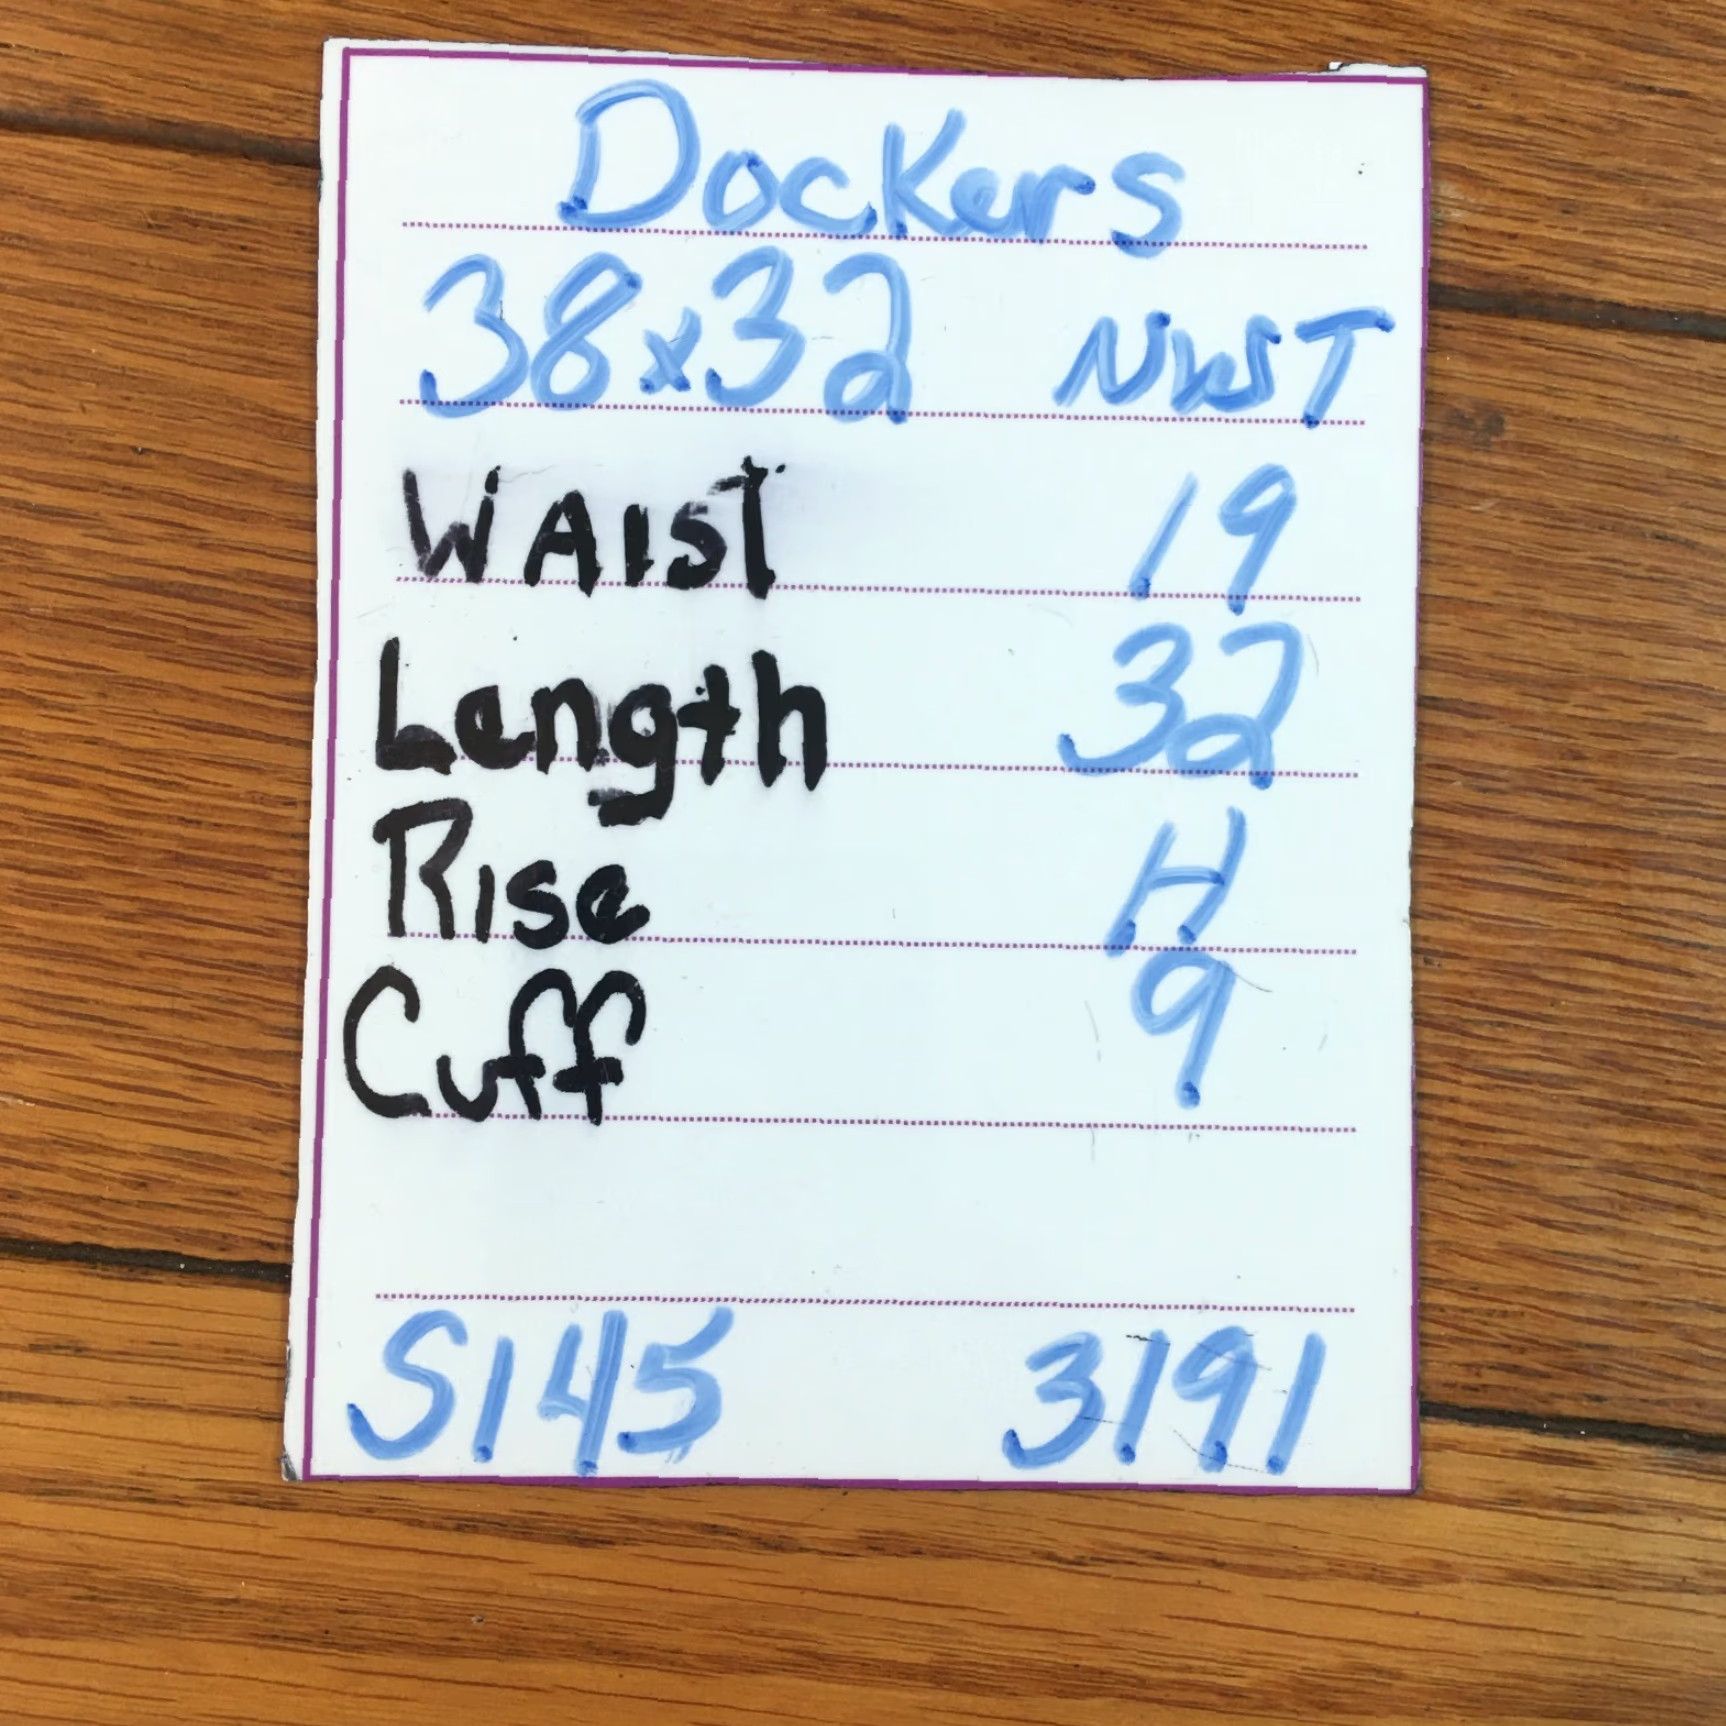 Dockers
38x32 NWT
WAIST 19
Length 32
Rise H
Cuff 9
S145 3191